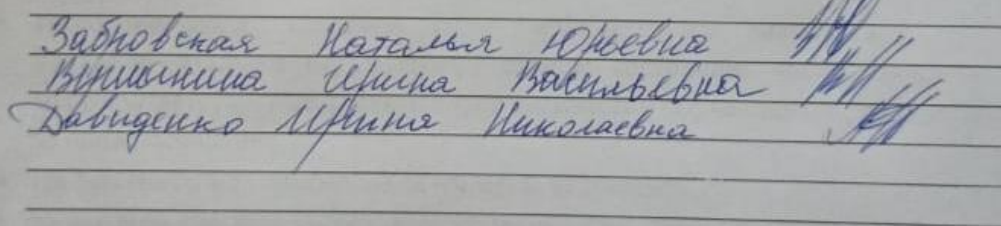 Забновская Наталья Юрьевна
Ирина Васильевна
Давиденко Ирина Николаевна